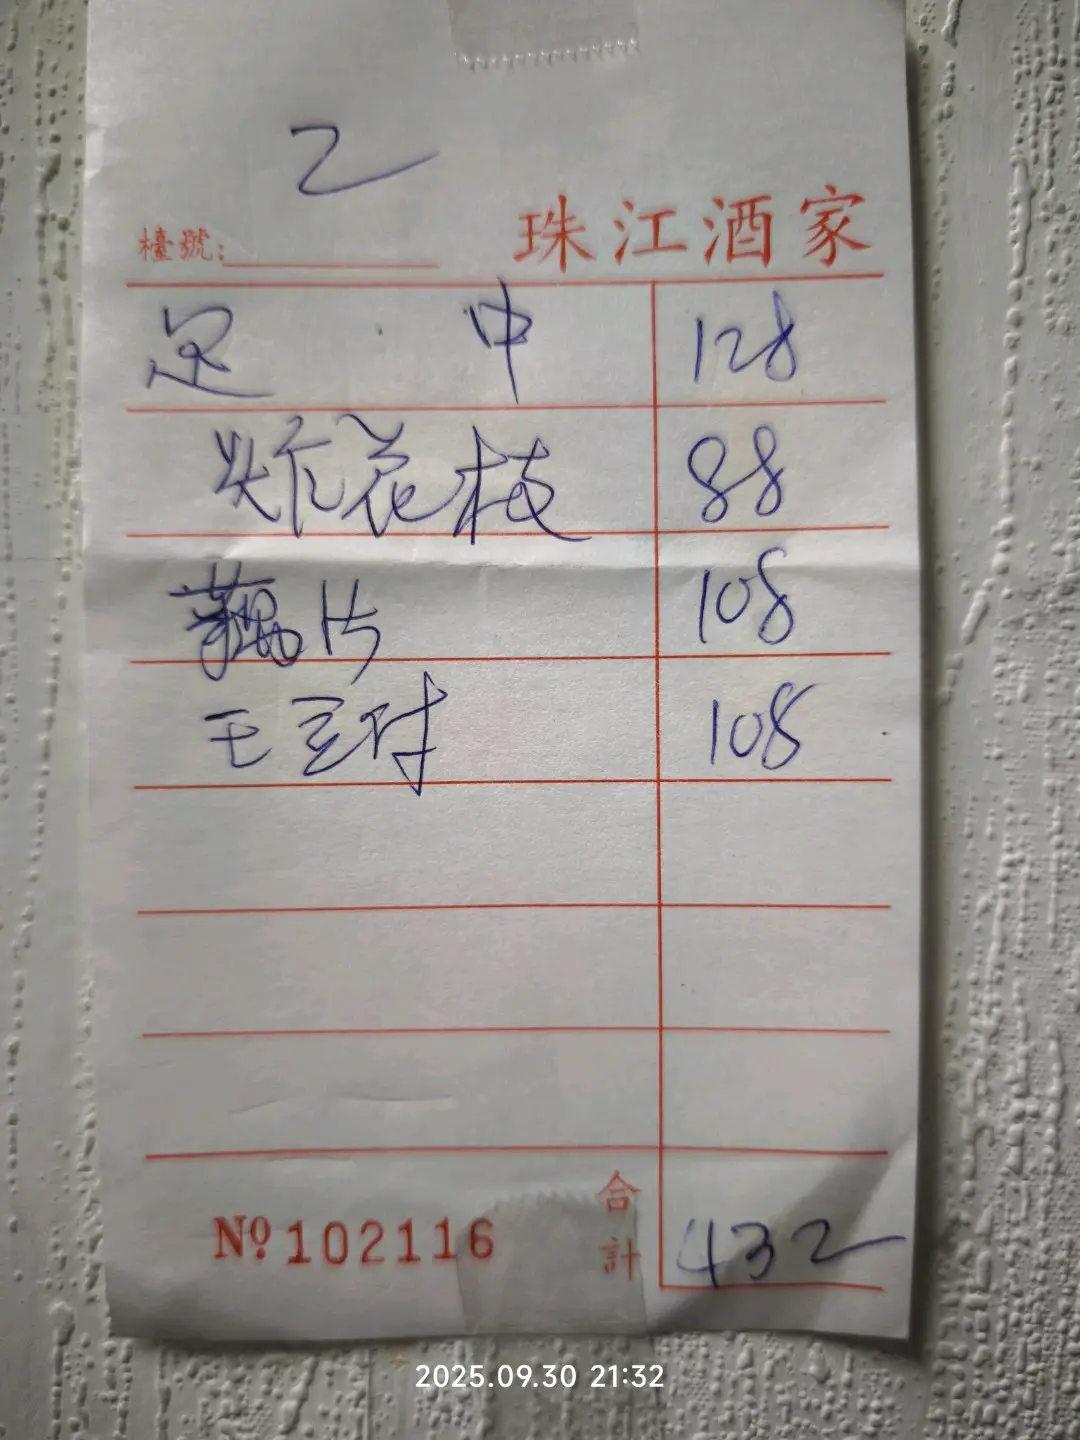 2
檯號: 珠江酒家
足 中 128
炸花枝 88
藕片 108
王豆付 108
合計 432
Nº 102116
2025.09.30 21:32